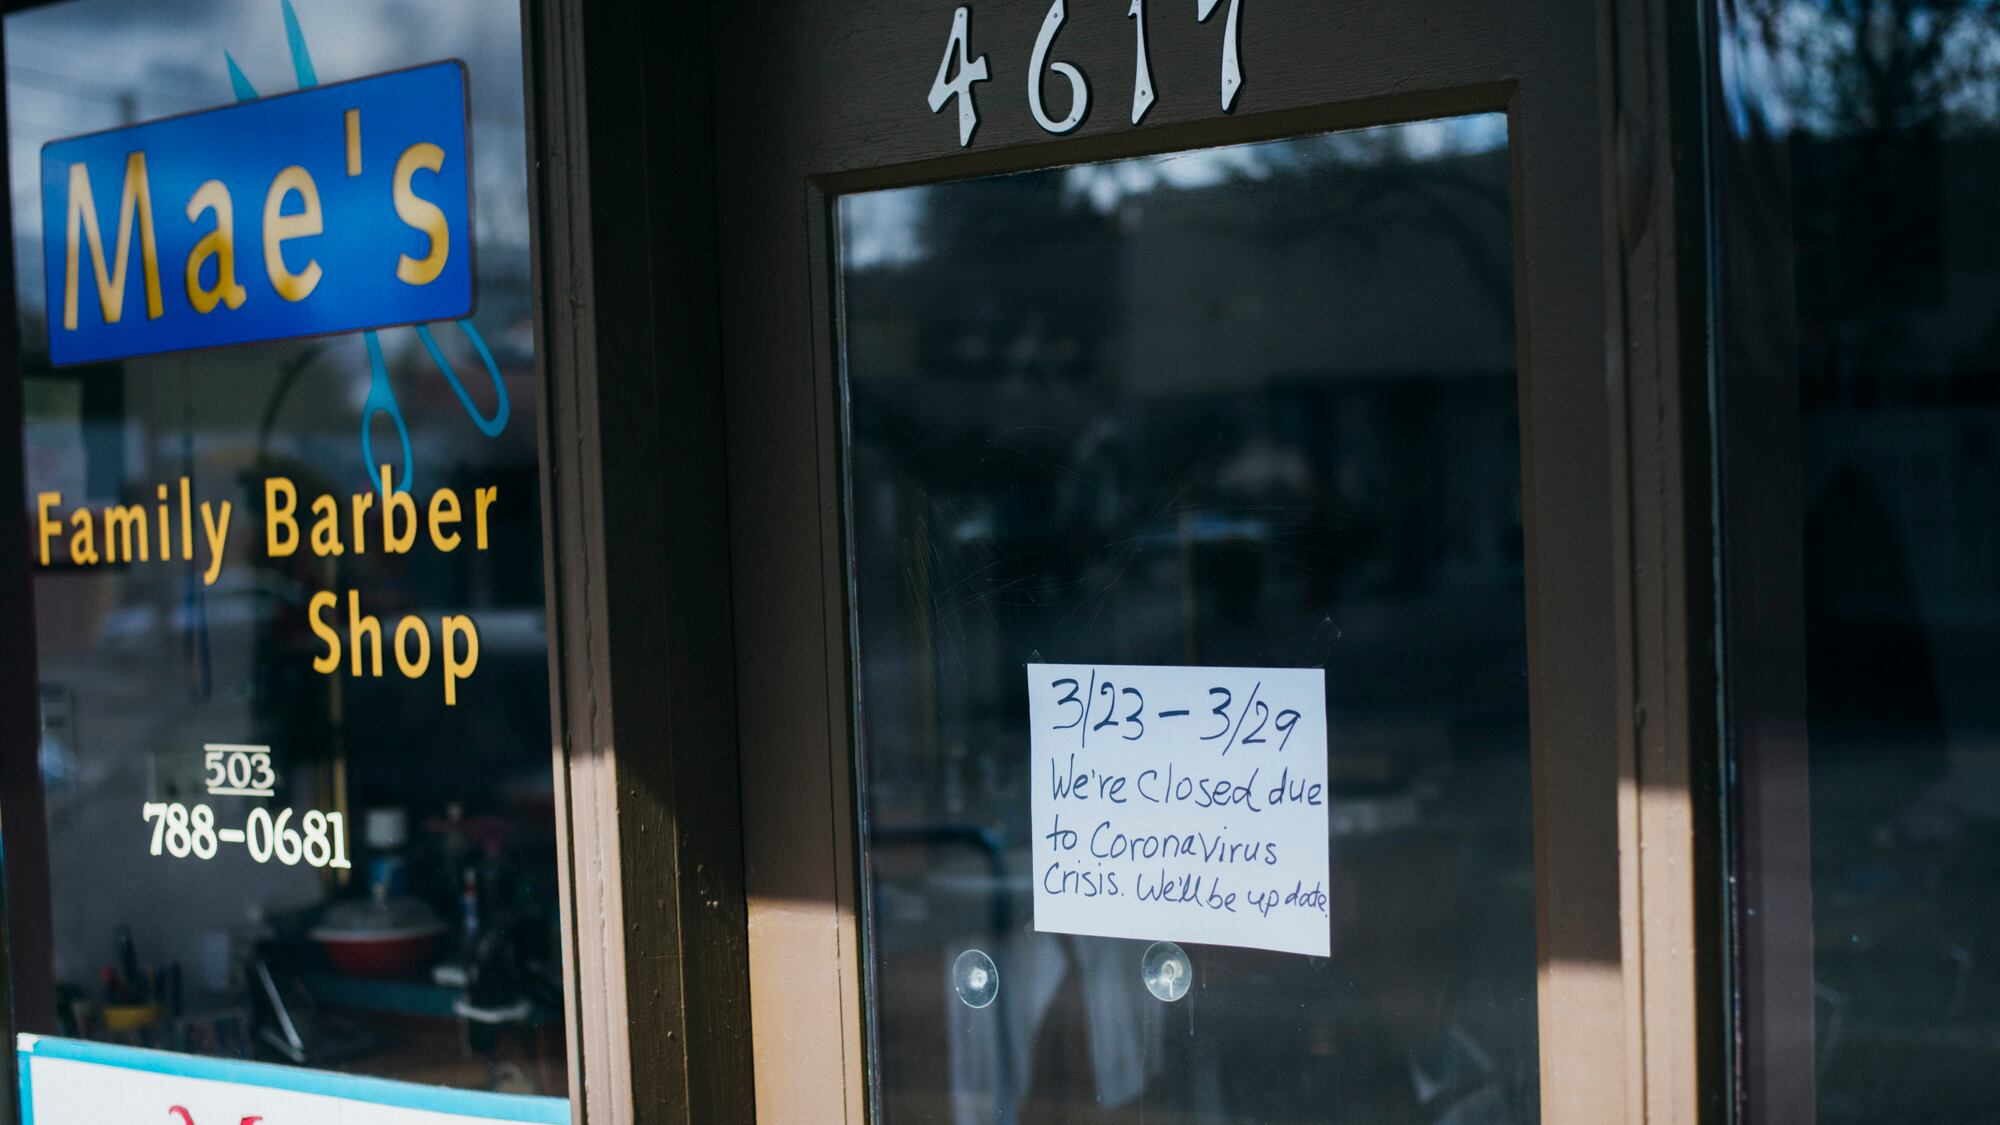 Mae's
Family Barber
Shop
503
788-0681
4617
3/23 - 3/29
We're Closed due
to Coronavirus
Crisis. We'll be update.